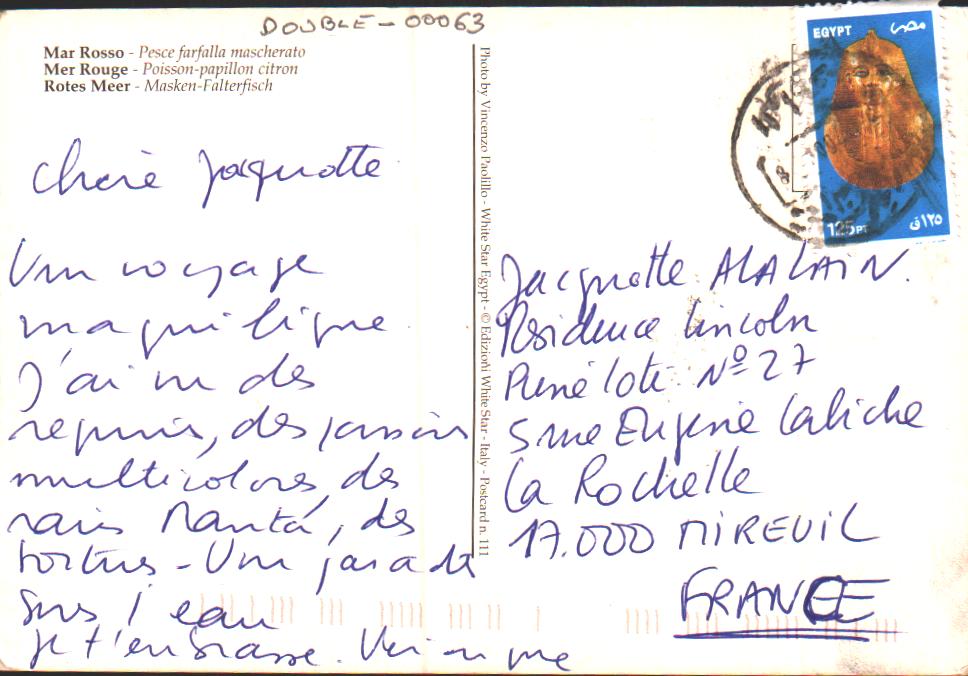 DOUBLE - 00063
Mar Rosso - Pesce farfalla mascherato
Mer Rouge - Poisson-papillon citron
Rotes Meer - Masken-Falterfisch
Chère Jacquotte
Un voyage
magnifique
J'ai vu des
requins, des poissons
multicolores, des
raies Manta, des
tortues - Un paradis
sous l'eau
Je t'embrasse. Véronique
Photo by Vincenzo Paolillo - White Star Egypt - © Edizioni White Star - Italy - Postcard n. 111
EGYPT مصر
125 PT ١٢٥ ق
Jacquotte ALALAIN.
Résidence Lincoln
René Loti Nº 27
5 rue Eugène
La Rochelle
17.000 MIREUIL
FRANCE